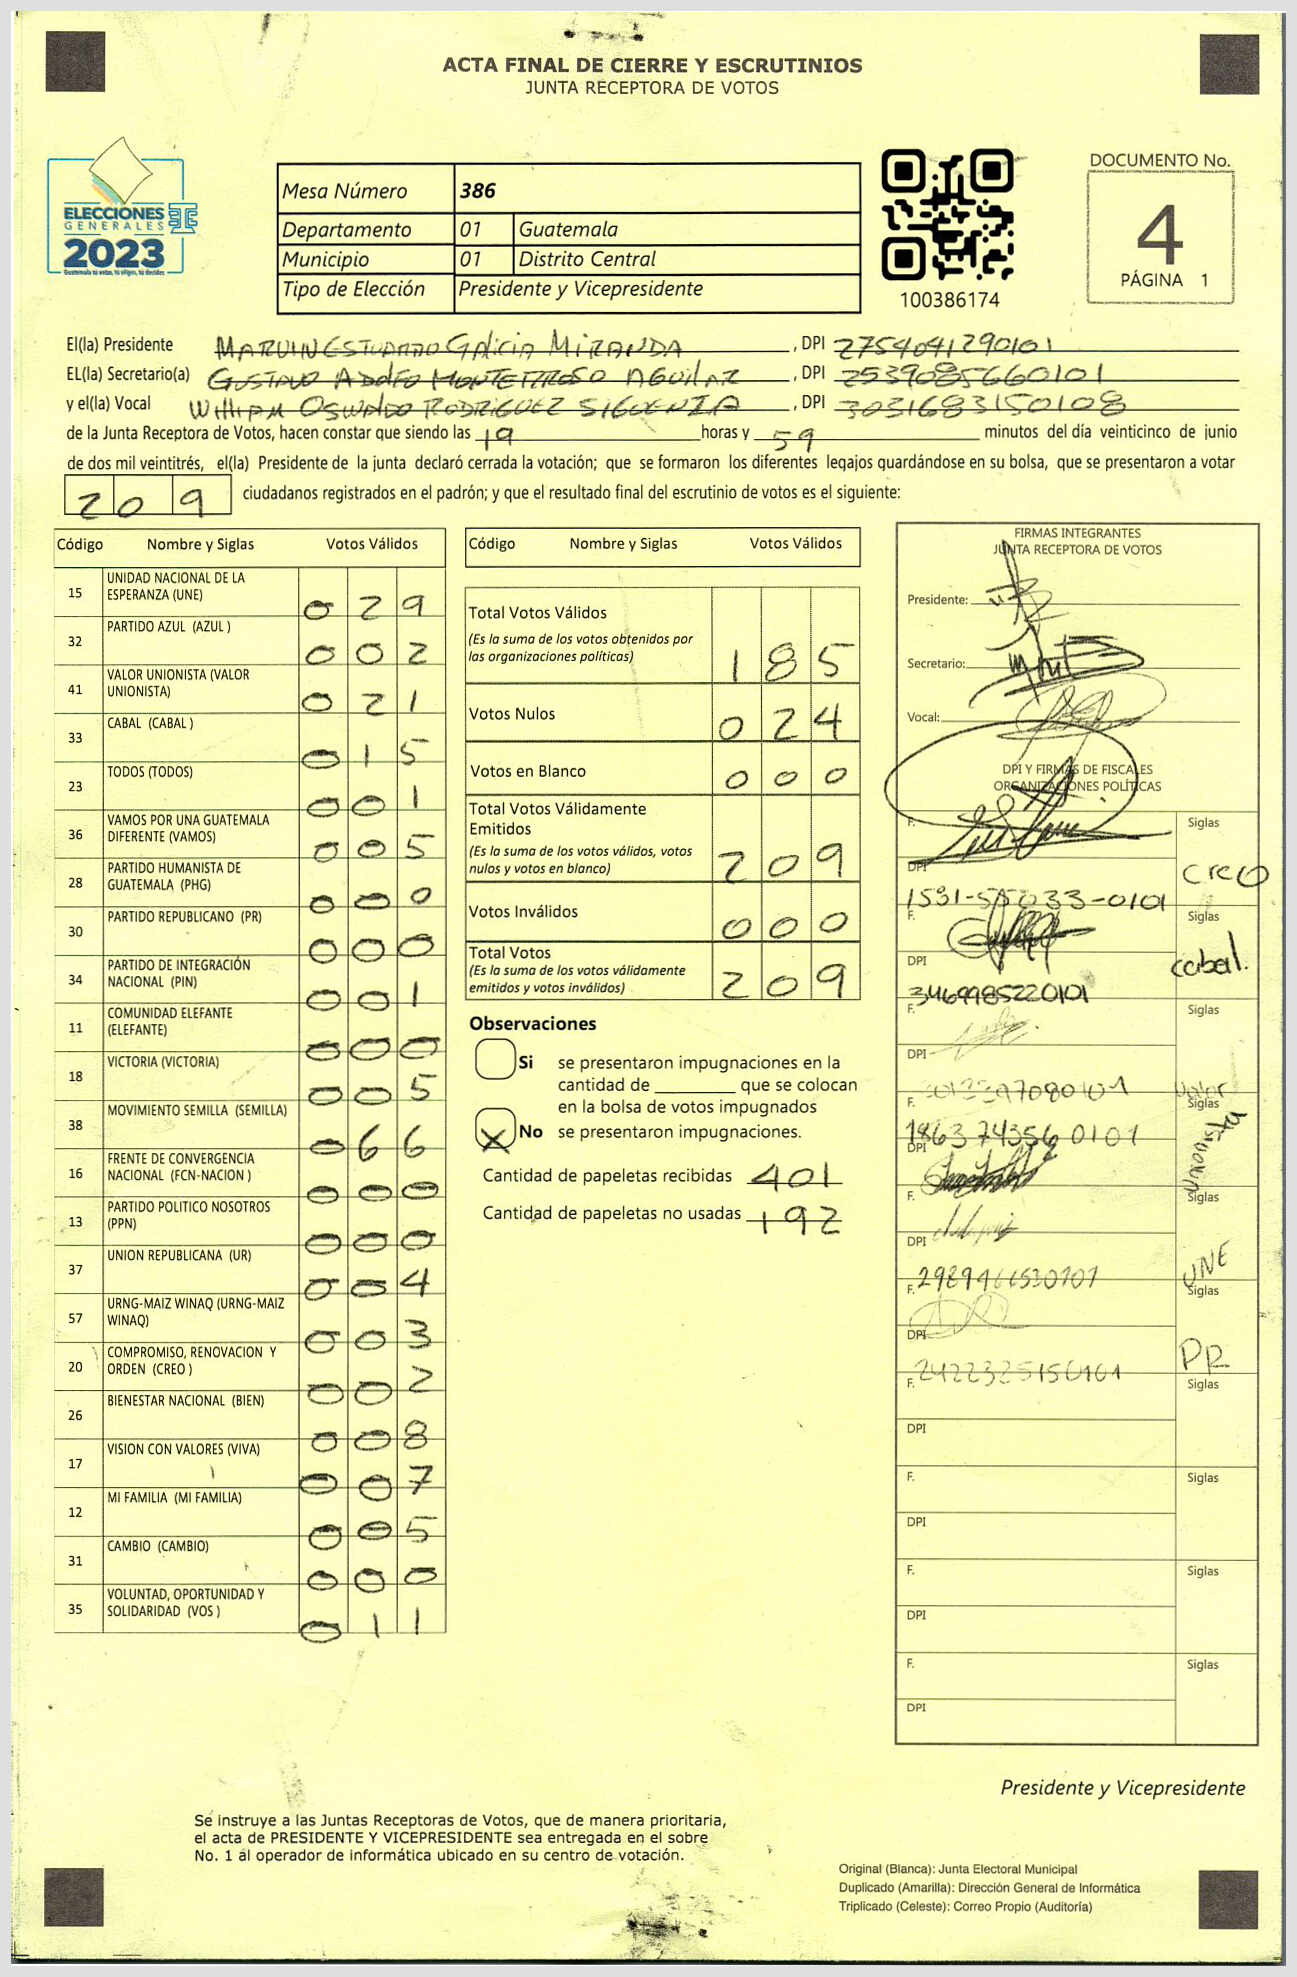 ACTA FINAL DE CIERRE Y ESCRUTINIOS
JUNTA RECEPTORA DE VOTOS
ELECCIONES
GENERALES
2023
Guatemala tú votas, tú eliges, tú decides
Mesa Número 386
Departamento 01 Guatemala
Municipio 01 Distrito Central
Tipo de Elección Presidente y Vicepresidente
100386174
DOCUMENTO No.
4
PÁGINA 1
El(la) Presidente MARVIN ESTUARDO GALICIA MIRANDA, DPI 2754041290101
EL(la) Secretario(a) GUSTAVO ADOLFO MONTERROSO AGUILAR, DPI 2539085660101
y el(la) Vocal WILLIAM OSWALDO RODRIGUEZ SIGUENZA, DPI 3031683150108
de la Junta Receptora de Votos, hacen constar que siendo las 19 horas y 59 minutos del día veinticinco de junio
de dos mil veintitrés, el(la) Presidente de la junta declaró cerrada la votación; que se formaron los diferentes legajos guardándose en su bolsa, que se presentaron a votar
209 ciudadanos registrados en el padrón; y que el resultado final del escrutinio de votos es el siguiente:
Código Nombre y Siglas Votos Válidos
15 UNIDAD NACIONAL DE LA
ESPERANZA (UNE) 029
32 PARTIDO AZUL (AZUL ) 002
41 VALOR UNIONISTA (VALOR
UNIONISTA) 021
33 CABAL (CABAL ) 015
23 TODOS (TODOS) 001
36 VAMOS POR UNA GUATEMALA
DIFERENTE (VAMOS) 005
28 PARTIDO HUMANISTA DE
GUATEMALA (PHG) 000
30 PARTIDO REPUBLICANO (PR) 000
34 PARTIDO DE INTEGRACIÓN
NACIONAL (PIN) 001
11 COMUNIDAD ELEFANTE
(ELEFANTE) 000
18 VICTORIA (VICTORIA) 005
38 MOVIMIENTO SEMILLA (SEMILLA) 066
16 FRENTE DE CONVERGENCIA
NACIONAL (FCN-NACION ) 000
13 PARTIDO POLITICO NOSOTROS
(PPN) 000
37 UNION REPUBLICANA (UR) 004
57 URNG-MAIZ WINAQ (URNG-MAIZ
WINAQ) 003
20 COMPROMISO, RENOVACION Y
ORDEN (CREO ) 002
26 BIENESTAR NACIONAL (BIEN) 008
17 VISION CON VALORES (VIVA) 007
12 MI FAMILIA (MI FAMILIA) 005
31 CAMBIO (CAMBIO) 000
35 VOLUNTAD, OPORTUNIDAD Y
SOLIDARIDAD (VOS ) 011
Código Nombre y Siglas Votos Válidos
Total Votos Válidos
(Es la suma de los votos obtenidos por
las organizaciones políticas) 185
Votos Nulos 024
Votos en Blanco 000
Total Votos Válidamente
Emitidos
(Es la suma de los votos válidos, votos
nulos y votos en blanco) 209
Votos Inválidos 000
Total Votos
(Es la suma de los votos válidamente
emitidos y votos inválidos) 209
Observaciones
Si se presentaron impugnaciones en la
cantidad de ________ que se colocan
en la bolsa de votos impugnados
X No se presentaron impugnaciones.
Cantidad de papeletas recibidas 401
Cantidad de papeletas no usadas 192
FIRMAS INTEGRANTES
JUNTA RECEPTORA DE VOTOS
Presidente:
Secretario:
Vocal:
DPI Y FIRMAS DE FISCALES
ORGANIZACIONES POLÍTICAS
F. Siglas
DPI creo
F. Siglas
DPI cabal.
3469985220101
F. Siglas
DPI
Valor
F. Siglas
1863743560101
DPI Unionista
F. Siglas
DPI
UNE
F. Siglas
DPI PR
F. Siglas
DPI
F. Siglas
DPI
F. Siglas
DPI
F. Siglas
DPI
Presidente y Vicepresidente
Se instruye a las Juntas Receptoras de Votos, que de manera prioritaria,
el acta de PRESIDENTE Y VICEPRESIDENTE sea entregada en el sobre
No. 1 al operador de informática ubicado en su centro de votación.
Original (Blanca): Junta Electoral Municipal
Duplicado (Amarilla): Dirección General de Informática
Triplicado (Celeste): Correo Propio (Auditoría)